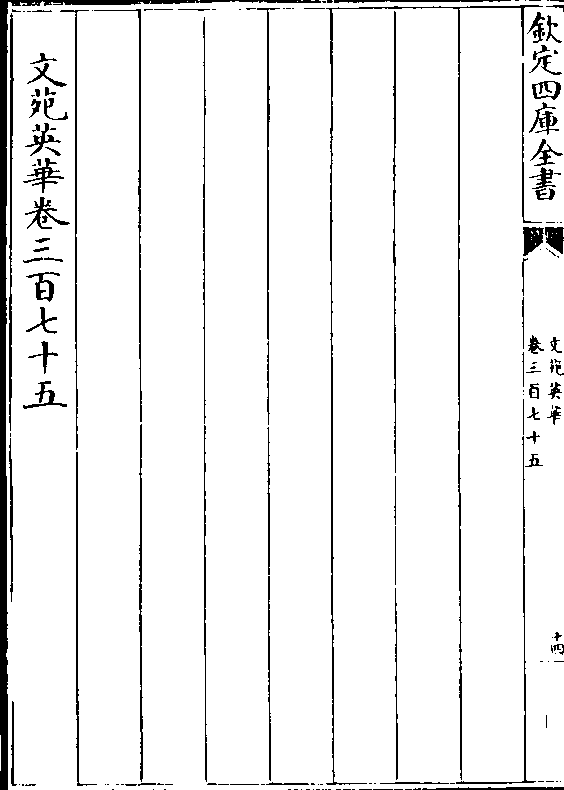 欽定四庫全書
文苑英華
卷三百七十五
十四
文苑英華卷三百七十五